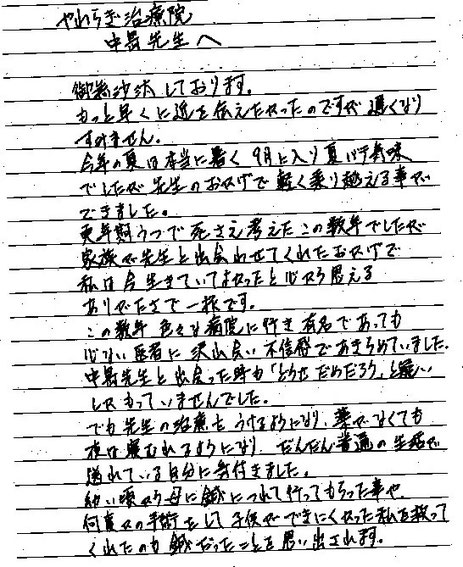 やわらぎ治療院
中島先生へ
御無沙汰しております。
もっと早くに近況を伝えたかったのですが遅くなり
すみません。
今年の夏は本当に暑く9月に入り夏バテ気味
でしたが先生のおかげで軽く乗り越える事が
できました。
更年期うつで死さえ考えたこの数年でしたが
家族が先生と出会わせてくれたおかげで
私は今生きていてよかったと心から思える
ありがたさで一杯です。
この数年色々な病院に行き有名であっても
心ない医者に沢山会い不信感であきらめていました。
中島先生と出会った時も「どうせだめだろう」と疑い
しかもっていませんでした。
でも先生の治療をうけるようになり、薬がなくても
夜は寝むれるようになり、だんだん普通の生活が
送れている自分に気付きました。
幼い頃から母に鍼につれて行ってもらった事や
何度かの手術をして子供ができにくかった私を救って
くれたのも鍼だったことを思い出されます。